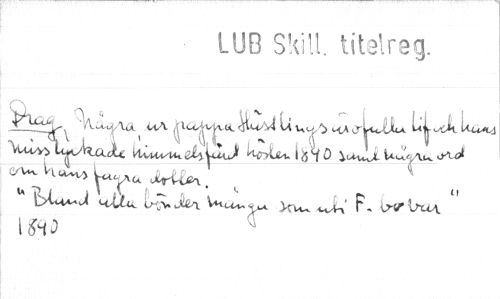 LUB Skill. titelreg.
Drag, Några, ur pappa Hüstlings ärofulla lif och hans
misslyckade himmelsfärd hösten 1890 samt några ord
om hans fagra dotter.
"Bland alla bönder många som uti F. bo
1890